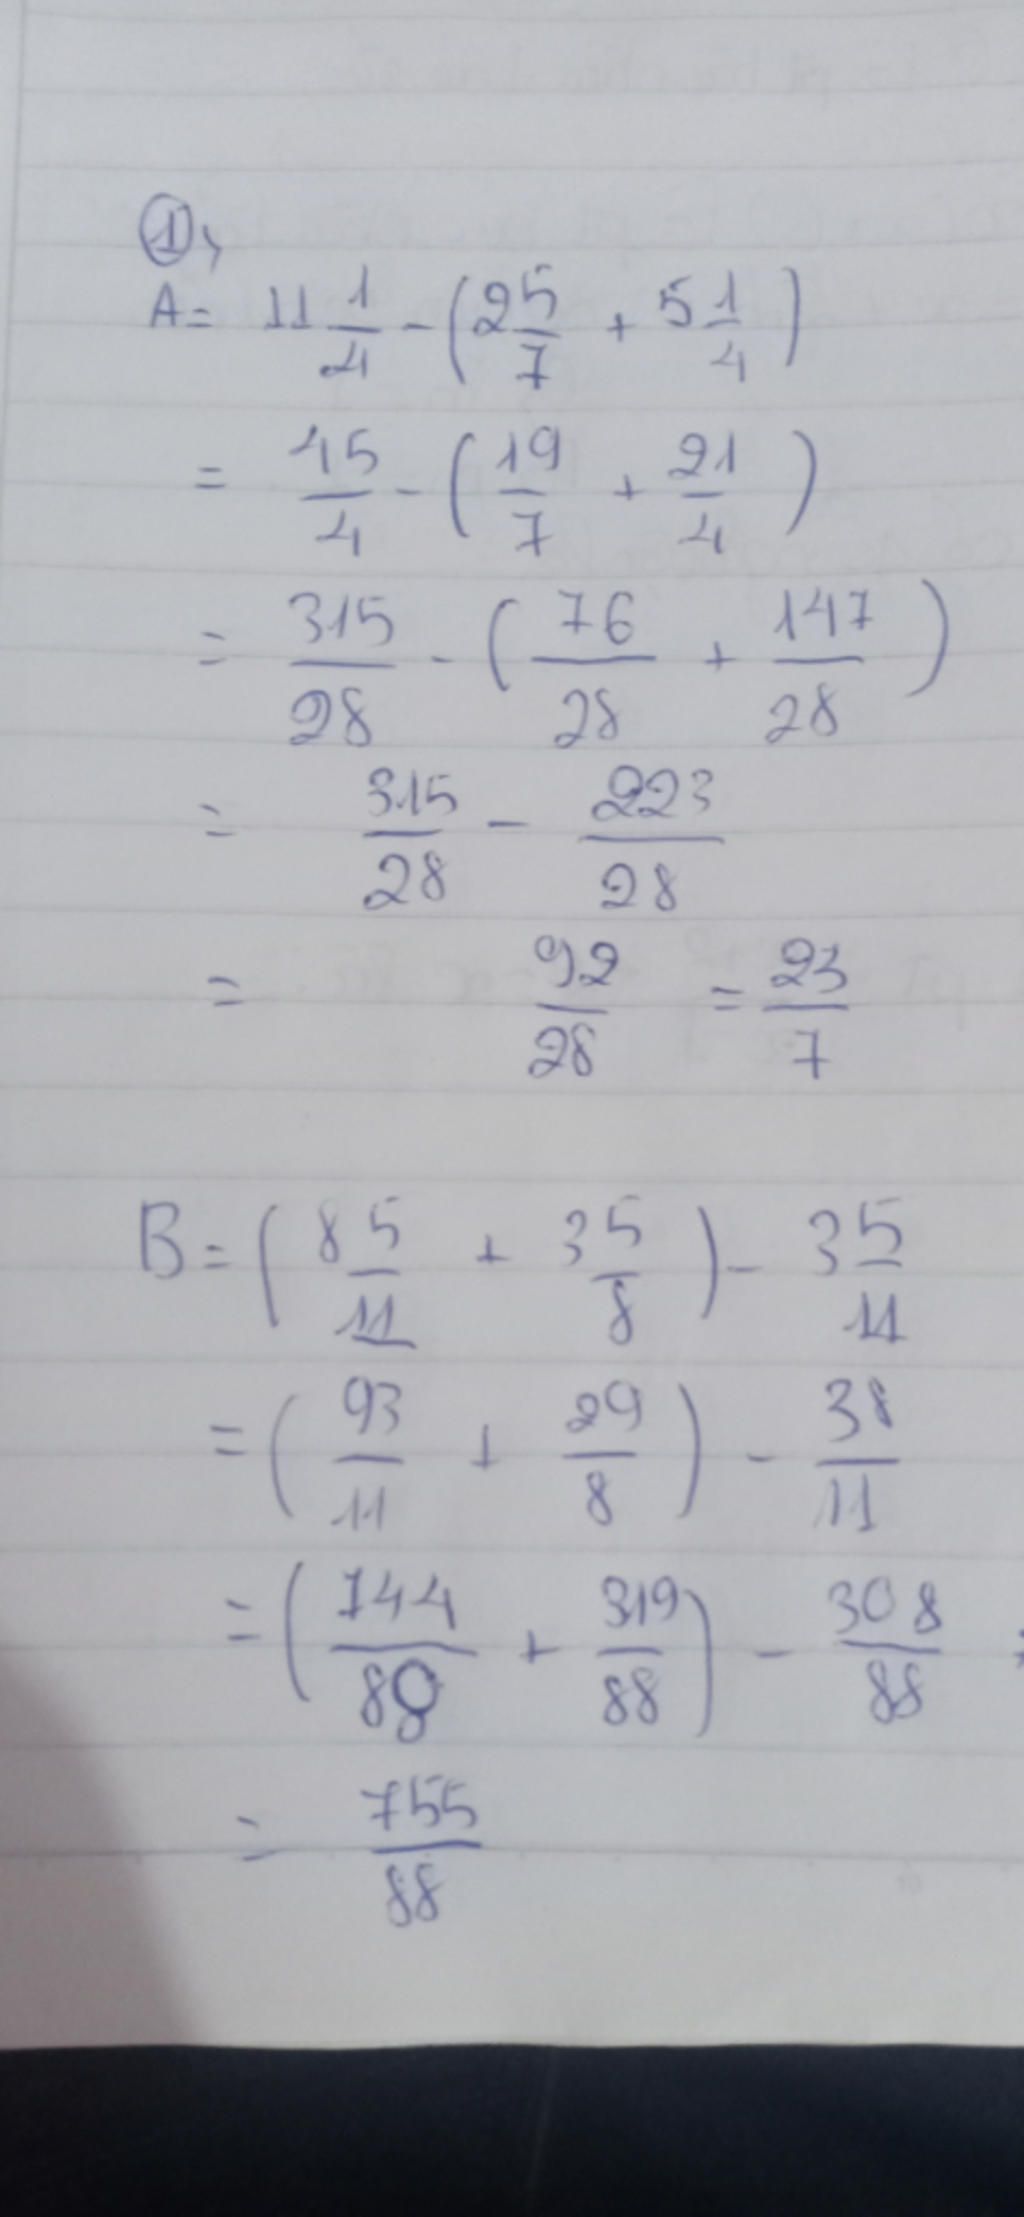 ①,
A = 11 1/4 - (2 5/7 + 5 1/4)
= 45/4 - (19/7 + 21/4)
= 315/28 - (76/28 + 147/28)
= 315/28 - 223/28
= 92/28 = 23/7
B = (8 5/11 + 3 5/8) - 3 5/11
= (93/11 + 29/8) - 38/11
= (744/88 + 319/88) - 308/88
= 755/88